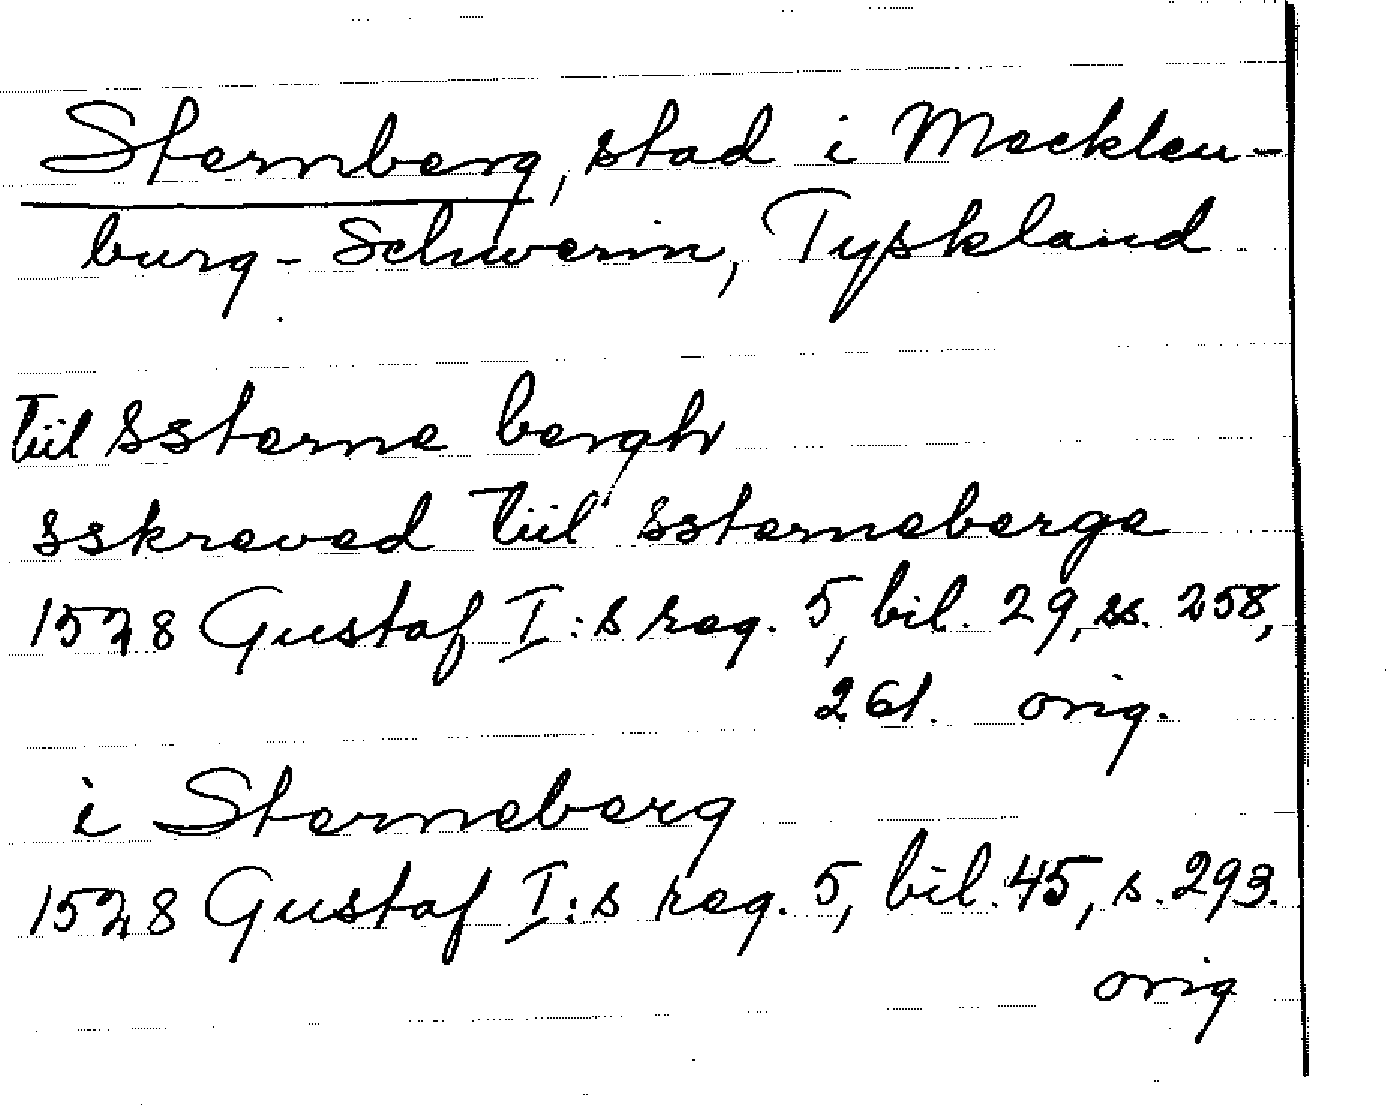 Sternberg, stad i Mecklen-
burg-Schwerin, Tyskland
Tiil Ssterne bergh
Sskreved Tiil Ssterneberge
1528 Gustaf I:s reg. 5, bil. 29, ss. 258,
261. orig.
i Sterneberg
1528 Gustaf I:s reg. 5, bil. 45, s. 293.
orig